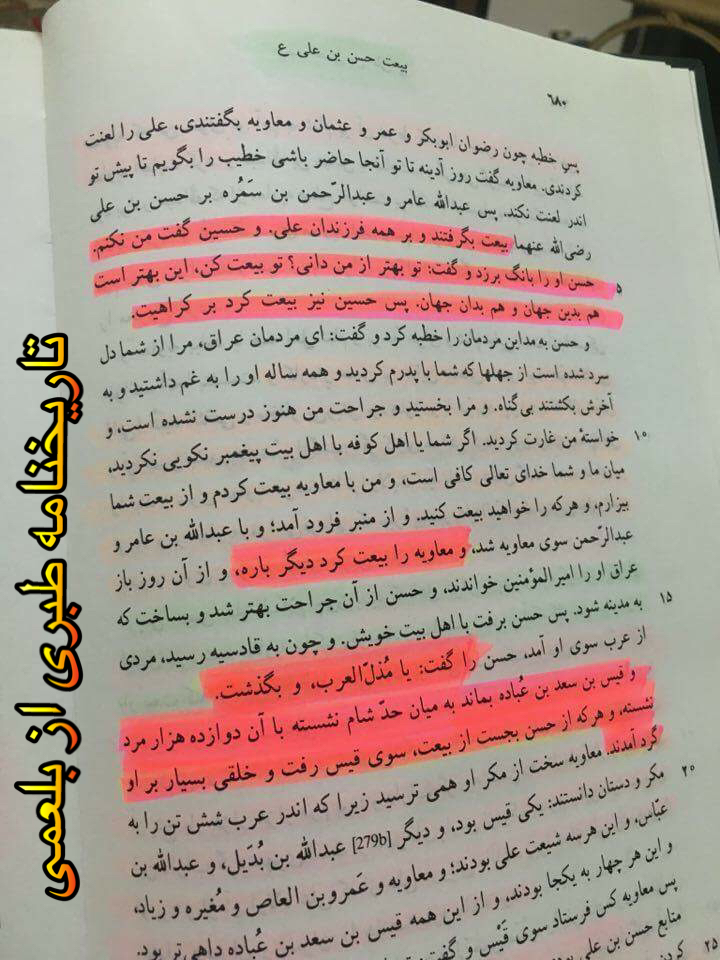 بیعت حسن بن علی ع
۶۸۰
پس خطبه چون رضوان ابوبکر و عمر و عثمان و معاویه بگفتندی، علی را لعنت
کردندی. معاویه گفت روز آدینه تا تو آنجا حاضر باشی خطیب را بگویم تا پیش تو
اندر لعنت نکند. پس عبدالله عامر و عبدالرّحمن بن سَمُره بر حسن بن علی
رضی‌الله عنهما بیعت بگرفتند و بر همه فرزندان علی. و حسین گفت من نکنم.
۵ حسن او را بانگ برزد و گفت: تو بهتر از من دانی؟ تو بیعت کن، این بهتر است
هم بدین جهان و هم بدان جهان. پس حسین نیز بیعت کرد بر کراهیت.
و حسن به مداین مردمان را خطبه کرد و گفت: ای مردمان عراق، مرا از شما دل
سرد شده است از جهلها که شما با پدرم کردید و همه ساله او را به غم داشتید و به
آخرش بکشتند بی‌گناه. و مرا بخستید و جراحت من هنوز درست نشده است، و
۱۰ خواستهٔ من غارت کردید. اگر شما یا اهل کوفه با اهل بیت پیغمبر نکویی نکردید،
میان ما و شما خدای تعالی کافی است، و من با معاویه بیعت کردم و از بیعت شما
بیزارم، و هرکه را خواهید بیعت کنید. و از منبر فرود آمد؛ و با عبدالله بن عامر و
عبدالرّحمن سوی معاویه شد، و معاویه را بیعت کرد دیگر باره، و از آن روز باز
عراق او را امیرالمؤمنین خواندند، و حسن از آن جراحت بهتر شد و بساخت که
۱۵ به مدینه شود. پس حسن برفت با اهل بیت خویش. و چون به قادسیه رسید، مردی
از عرب سوی او آمد، حسن را گفت: یا مُذلّ‌العرب، و بگذشت.
و قیس بن سعد بن عُباده بماند به میان حدّ شام نشسته با آن دوازده هزار مرد
نشسته، و هرکه از حسن بجست از بیعت، سوی قیس رفت و خلقی بسیار بر او
گرد آمدند. معاویه سخت از مکر او همی ترسید زیرا که اندر عرب شش تن را به
۲۰ مکر و دستان دانستند: یکی قیس بود، و دیگر [279b] عبدالله بن بُدَیل، و عبدالله بن
عبّاس، و این هرسه شیعت علی بودند؛ و معاویه و عَمروبن العاص و مُغیره و زیاد،
و این هر چهار به یکجا بودند، و از این همه قیس بن سعد بن عُباده داهی‌تر بود.
پس معاویه کس فرستاد سوی قَیْس و گفت:
متابع حسن بن علی
۲۵ کردن
تاریخنامه طبری از بلعمی